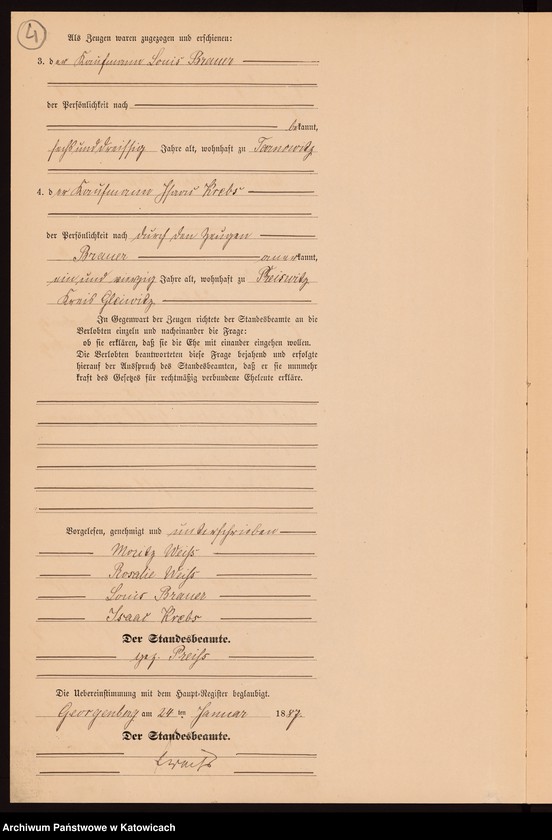 4
Als Zeugen waren zugezogen und erschienen:
3. der Kaufmann Louis Brauer
der Persönlichkeit nach
bekannt,
sechsunddreissig Jahre alt, wohnhaft zu Tarnowitz
4. der Kaufmann Isaac Krebs
der Persönlichkeit nach durch den Zeugen
Brauer anerkannt,
ein und vierzig Jahre alt, wohnhaft zu Preiswitz
Kreis Gleiwitz
In Gegenwart der Zeugen richtete der Standesbeamte an die
Verlobten einzeln und nacheinander die Frage:
ob sie erklären, daß sie die Ehe mit einander eingehen wollen.
Die Verlobten beantworteten diese Frage bejahend und erfolgte
hierauf der Ausspruch des Standesbeamten, daß er sie nunmehr
kraft des Gesetzes für rechtmäßig verbundene Eheleute erkläre.
Vorgelesen, genehmigt und unterschrieben
Moritz Weiß
Rosalie Weiß
Louis Brauer
Isaac Krebs
Der Standesbeamte.
gez. Preiß
Die Uebereinstimmung mit dem Haupt-Register beglaubigt.
Georgenberg am 24 ten Januar 1887.
Der Standesbeamte.
Preiß
Archiwum Państwowe w Katowicach